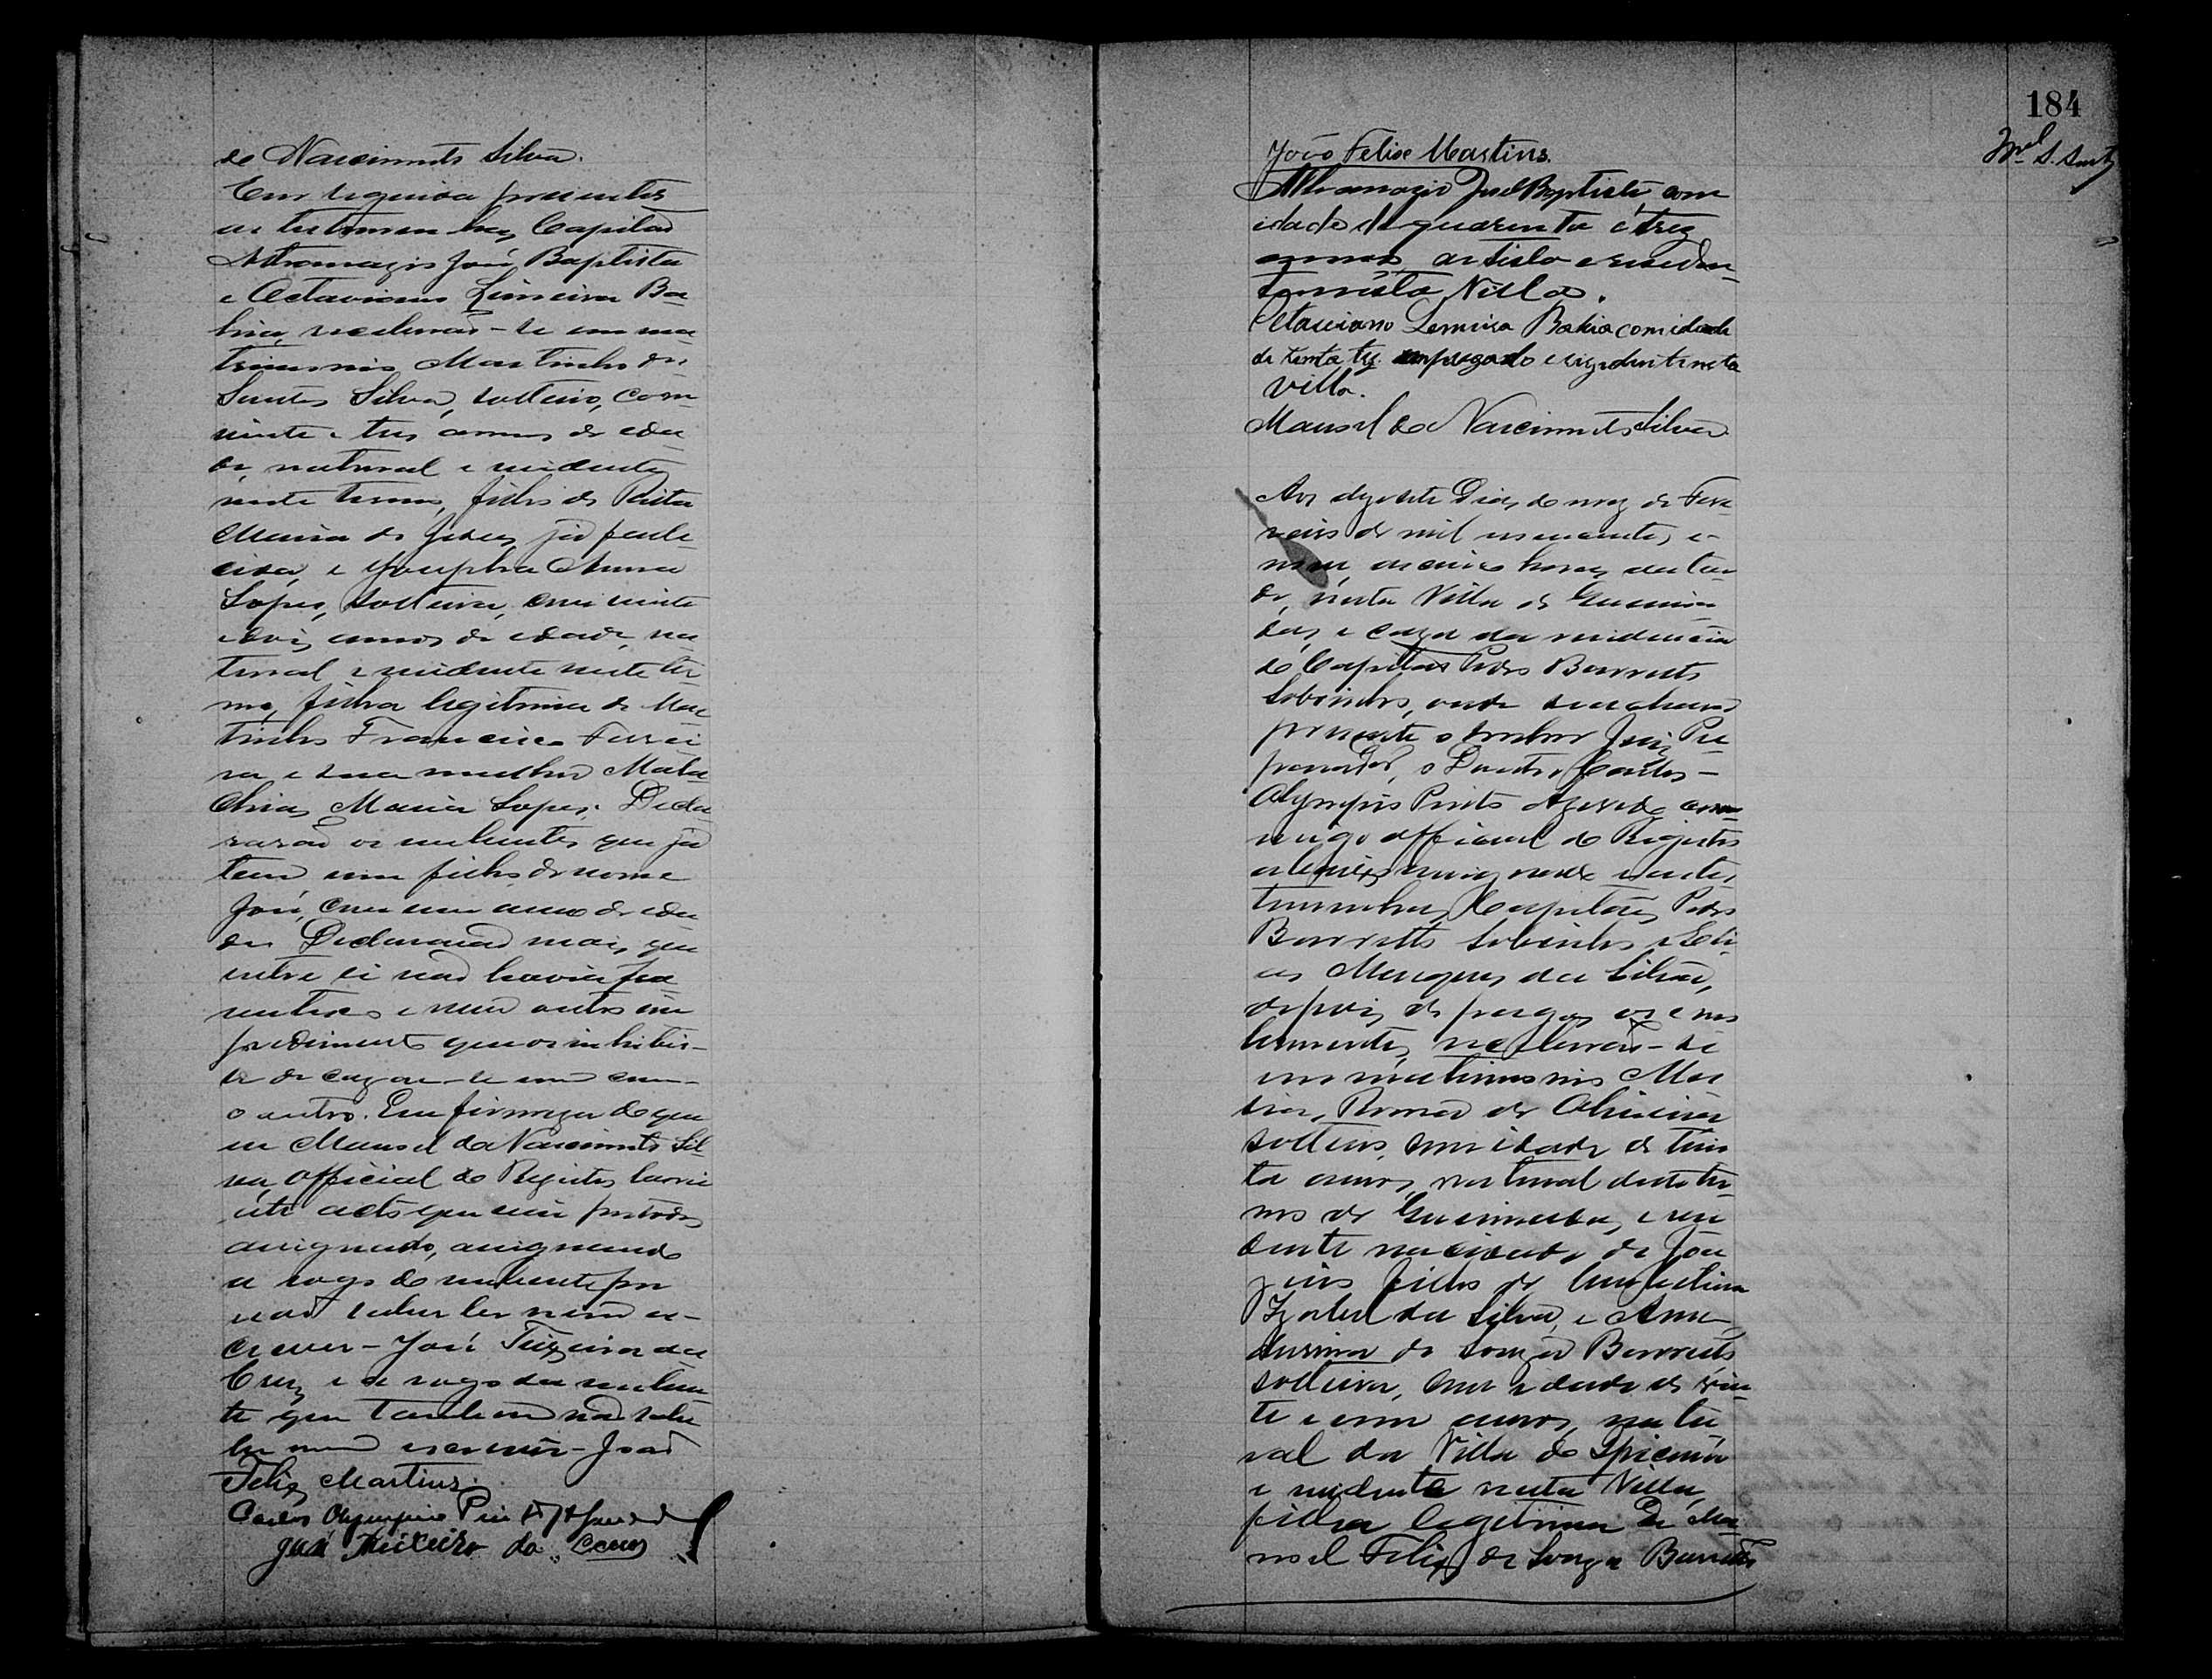 do Nascimento Silva.
Em seguida presentes
as testemunhas, Capitão
Athanazio José Baptista
e Octaviano Limeira Ba-
hia, receberão-se em ma-
trimonio Martinho dos
Santos Silva, solteiro, com
vinte e tres annos de ida-
de, natural e residente
neste termo, filho de Rita
Maria de Jesus, já falle-
cida, e Josepha Anna
Lopes, solteira, com vinte
e dois annos de idade, na-
tural e residente neste ter-
mo, filha legitima de Mar-
tinho Francisco Ferrei-
ra e sua mulher Mala-
chias Maria Lopes. Decla-
rarão os nubentes que já
tem um filho de nome
José, com um anno de ida-
de. Declararão mais, que
entre si não havia pa-
rentesco e nem outro im-
pedimento que os inhibis-
se de cazar-se um com
o outro. Em firmeza do que
eu Manoel do Nascimento Sil-
va, Official do Registro lavrei
este acto que vai por todos
assignado, assignando
a rogo do nubente por
não saber ler nem es-
crever - José Teixeira da
Cruz e a rogo da nuben-
te que tambem não sabe
ler nem escrever - João
Felix Martins.
Carlos Olympio Pinto Azevedo
José Teixeira da Cruz
184
João Felix Martins.
Athanazio José Baptista, com
idade de quarenta e tres
annos artista e residen-
te nesta Villa.
Octaviano Lemeira Bahia com idade
de trinta tres empregado e rezidente nesta
Villa.
Manoel do Nascimento Silva
Aos dezesete dias do mez de Feve-
reiro de mil novecentos e
nove, as cinco horas da tar-
de, nesta Villa de Queima-
das, e caza da residencia
do Capitão Pedro Barretto
Sobrinho, onde se achava
presente o senhor Juiz Pre-
parador, o Doutor Carlos
Olympio Pinto Azevedo com-
migo official do Registro
abaixo assignado e as tes-
temunhas, Capitães Pedro
Barretto Sobinho e Eli-
as Marques da Silva,
depois de pregoados os pro-
clamentes, receberão-se
em matrimonio Ma-
rio, de Oliveira
solteiro, com idade de trin-
ta annos, natural deste ter-
mo de Queimadas, e resi-
dente na cidade de Joa-
zeiro filho de
Izabel da Silva, e Ame-
de Souza Barretto
solteira, com idade de vin-
te e um annos, natu-
ral da Villa de
e residente nesta Villa,
filha legitima de Ma-
noel Felix de Souza Barretto